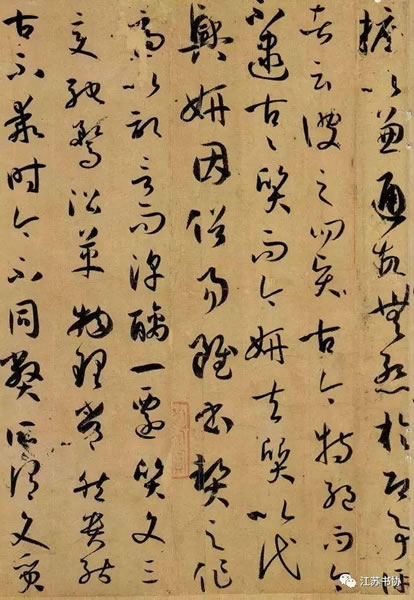 摭以兼通故無慚於即事評
者云彼之四賢古今特絕而今
不逮古々質而今妍夫質以代
興妍因俗易雖書契之作
適以記言而淳醨一遷質文三
變馳鶩沿革物理常然貴能
古不乖時今不同弊所謂文質
江苏书协